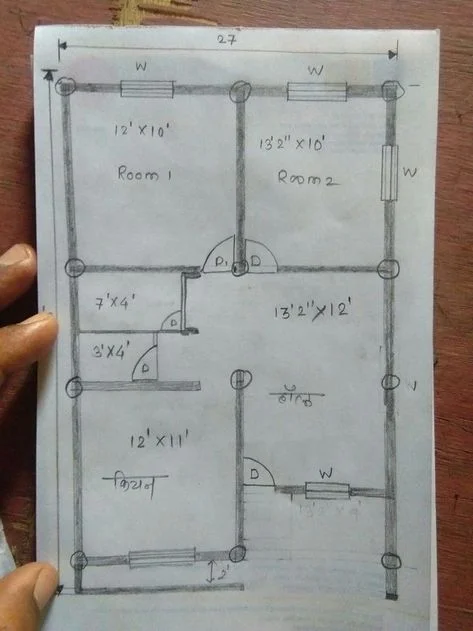 27
W
W
12' X 10'
13'2" X 10'
Room 1
Room 2
W
D1
D
7' X 4'
D
13'2" X 12'
3' X 4'
D
हॉल
12' X 11'
किचन
D
W
2'